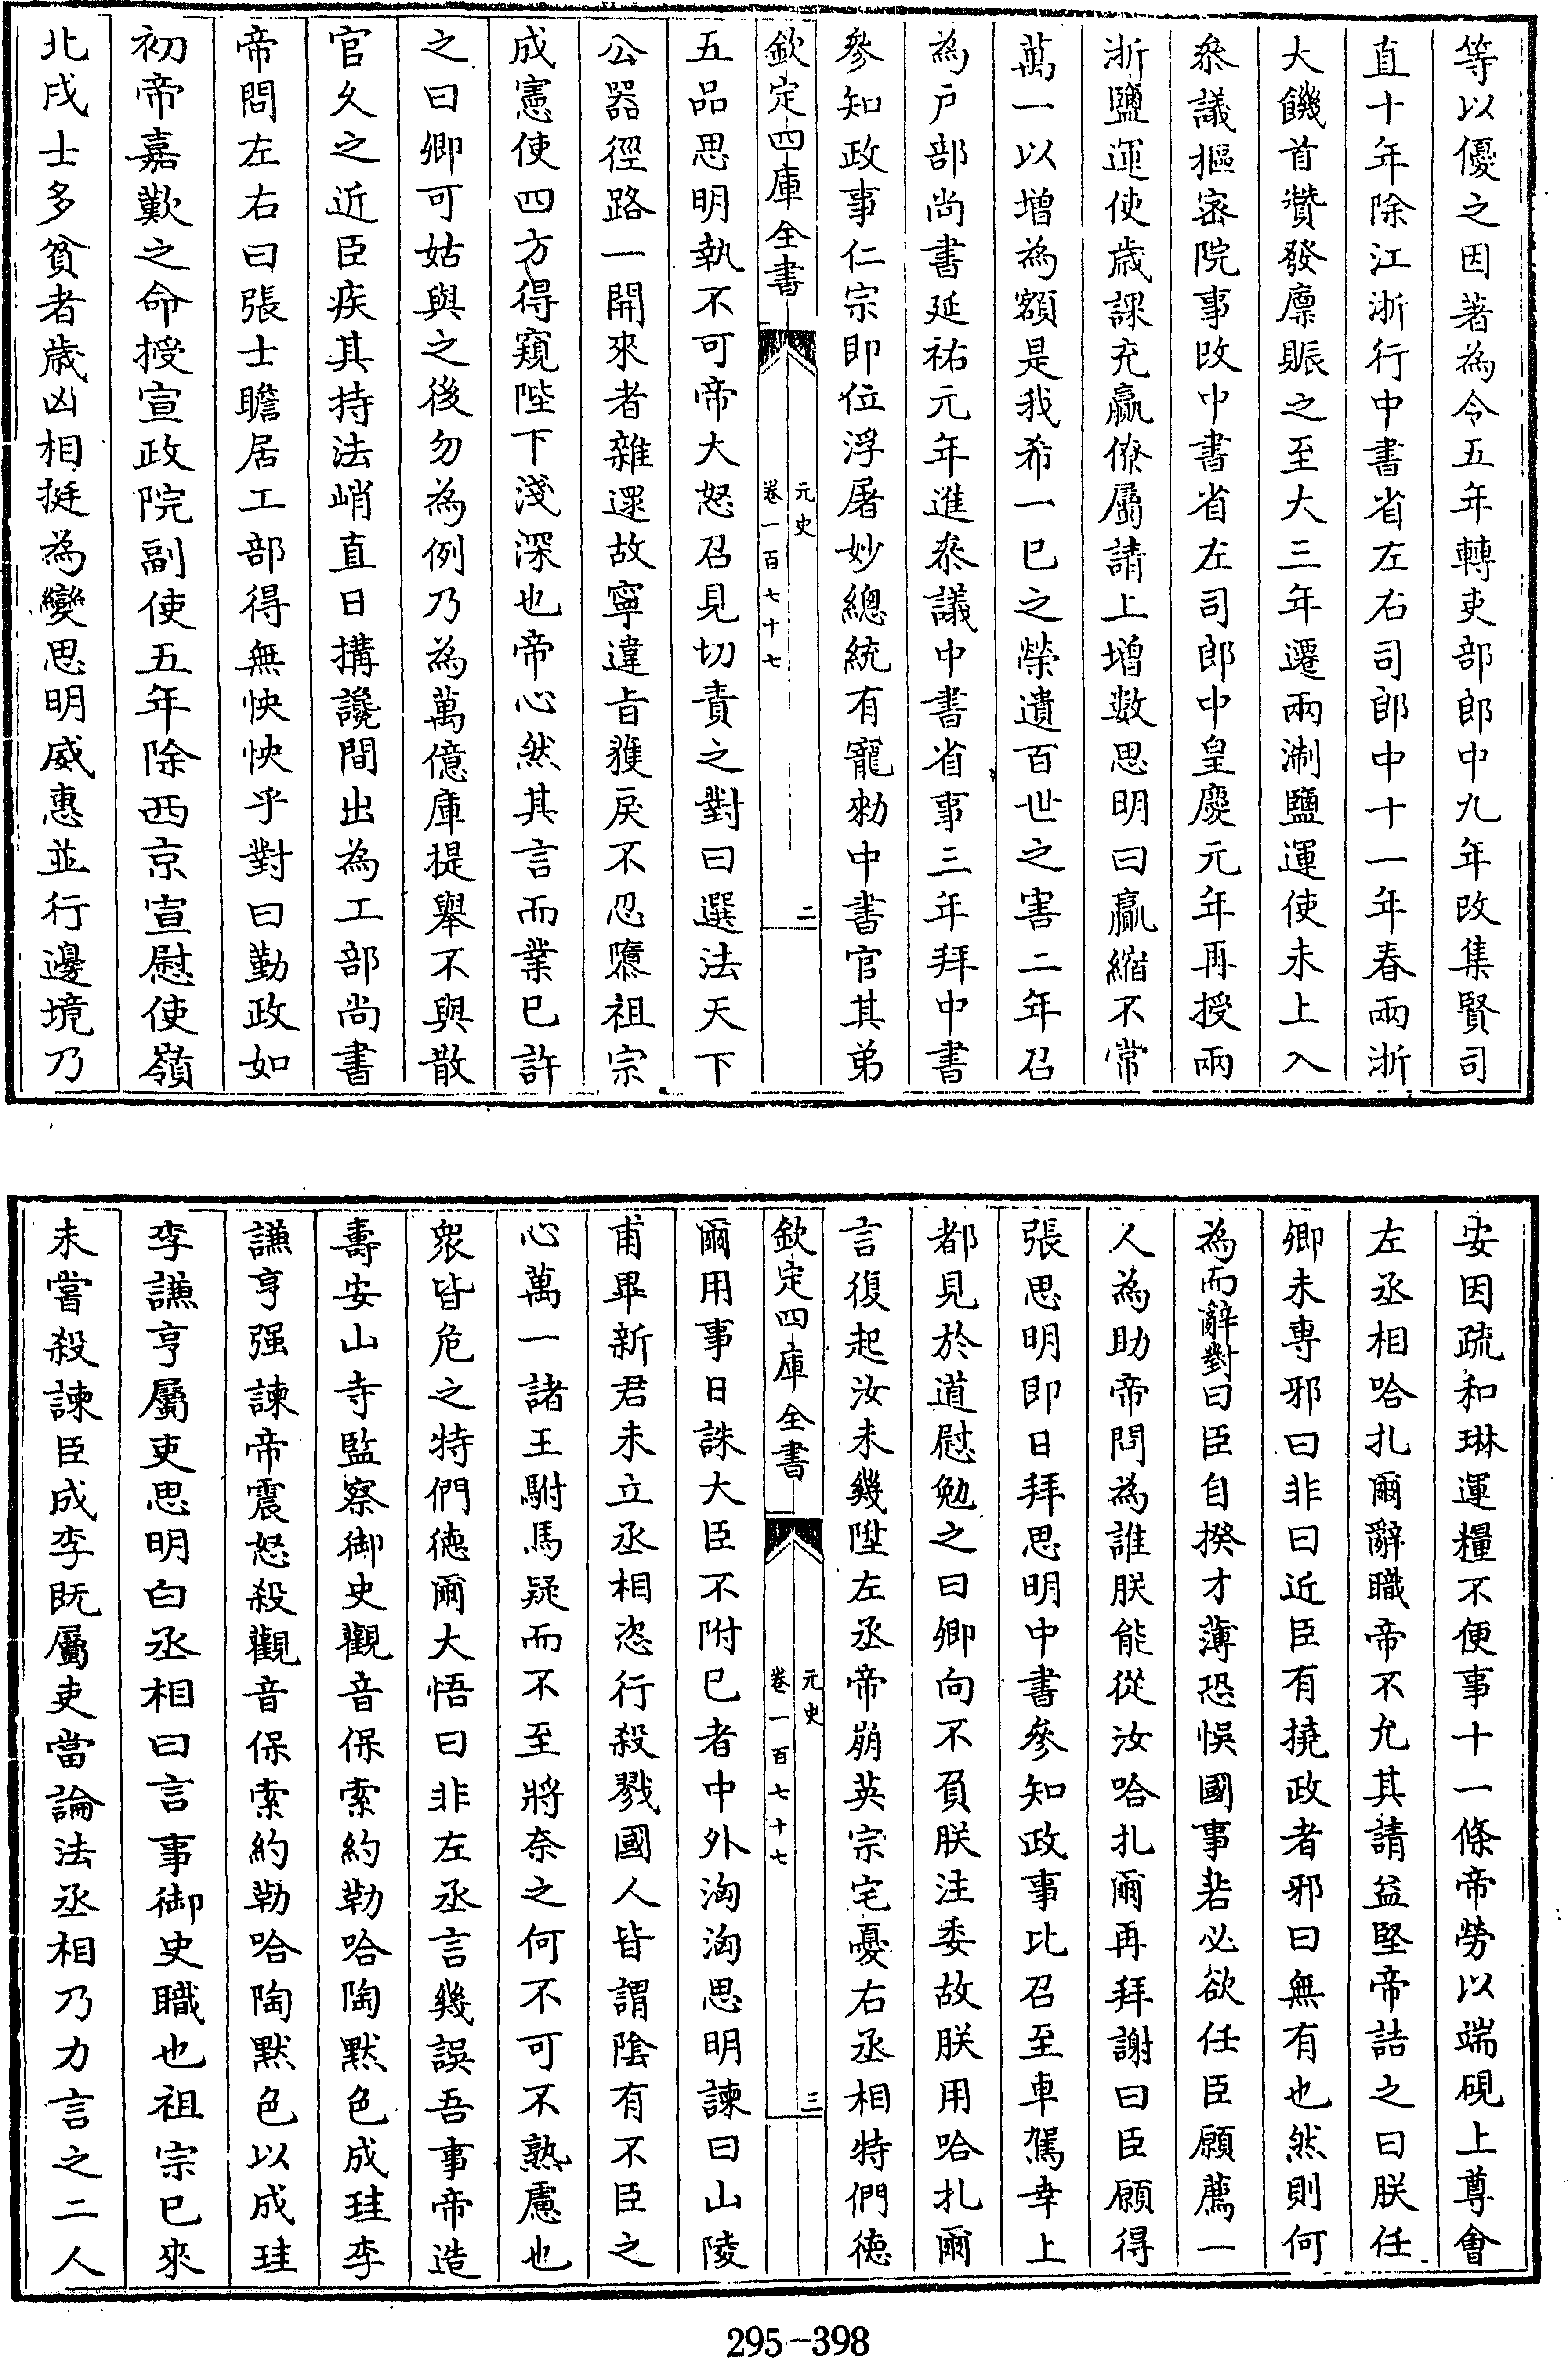 等以優之因著為令五年轉吏部郎中九年改集賢司
直十年除江浙行中書省左右司郎中十一年春兩浙
大饑首贊發廩賑之至大三年遷兩淛鹽運使未上入
叅議樞密院事改中書省左司郎中皇慶元年再授兩
浙鹽運使歳課充贏僚屬請上增數思明曰贏縮不常
萬一以增為額是我希一已之榮遺百世之害二年召
為戶部尚書延祐元年進叅議中書省事三年拜中書
參知政事仁宗即位浮屠妙總統有寵勑中書官其弟
欽定四庫全書
元史
卷一百七十七
二
五品思明執不可帝大怒召見切責之對曰選法天下
公器徑路一開來者雜遝故寧違旨獲戾不忍隳祖宗
成憲使四方得窺陛下淺深也帝心然其言而業已許
之曰卿可姑與之後勿為例乃為萬億庫提舉不與散
官久之近臣疾其持法峭直日搆讒間出為工部尚書
帝問左右曰張士瞻居工部得無怏怏乎對曰勤政如
初帝嘉歎之命授宣政院副使五年除西京宣慰使嶺
北戌士多貧者歳凶相挻為變思明威惠並行邊境乃
安因疏和琳運糧不便事十一條帝勞以端硯上尊會
左丞相哈扎爾辭職帝不允其請益堅帝詰之曰朕任
卿未專邪曰非曰近臣有撓政者邪曰無有也然則何
為而辭對曰臣自揆才薄恐悞國事若必欲任臣願薦一
人為助帝問為誰朕能從汝哈扎爾再拜謝曰臣願得
張思明即日拜思明中書參知政事比召至車駕幸上
都見於道慰勉之曰卿向不負朕注委故朕用哈扎爾
言復起汝未幾陞左丞帝崩英宗宅憂右丞相特們德
欽定四庫全書
元史
卷一百七十七
三
爾用事日誅大臣不附已者中外洶洶思明諫曰山陵
甫畢新君未立丞相恣行殺戮國人皆謂陰有不臣之
心萬一諸王駙馬疑而不至將奈之何不可不熟慮也
衆皆危之特們德爾大悟曰非左丞言幾誤吾事帝造
壽安山寺監察御史觀音保索約勒哈陶默色成珪李
謙亨强諫帝震怒殺觀音保索約勒哈陶默色以成珪
李謙亨屬吏思明白丞相曰言事御史職也祖宗已來
未嘗殺諫臣成李既屬吏當論法丞相乃力言之二人
295-398